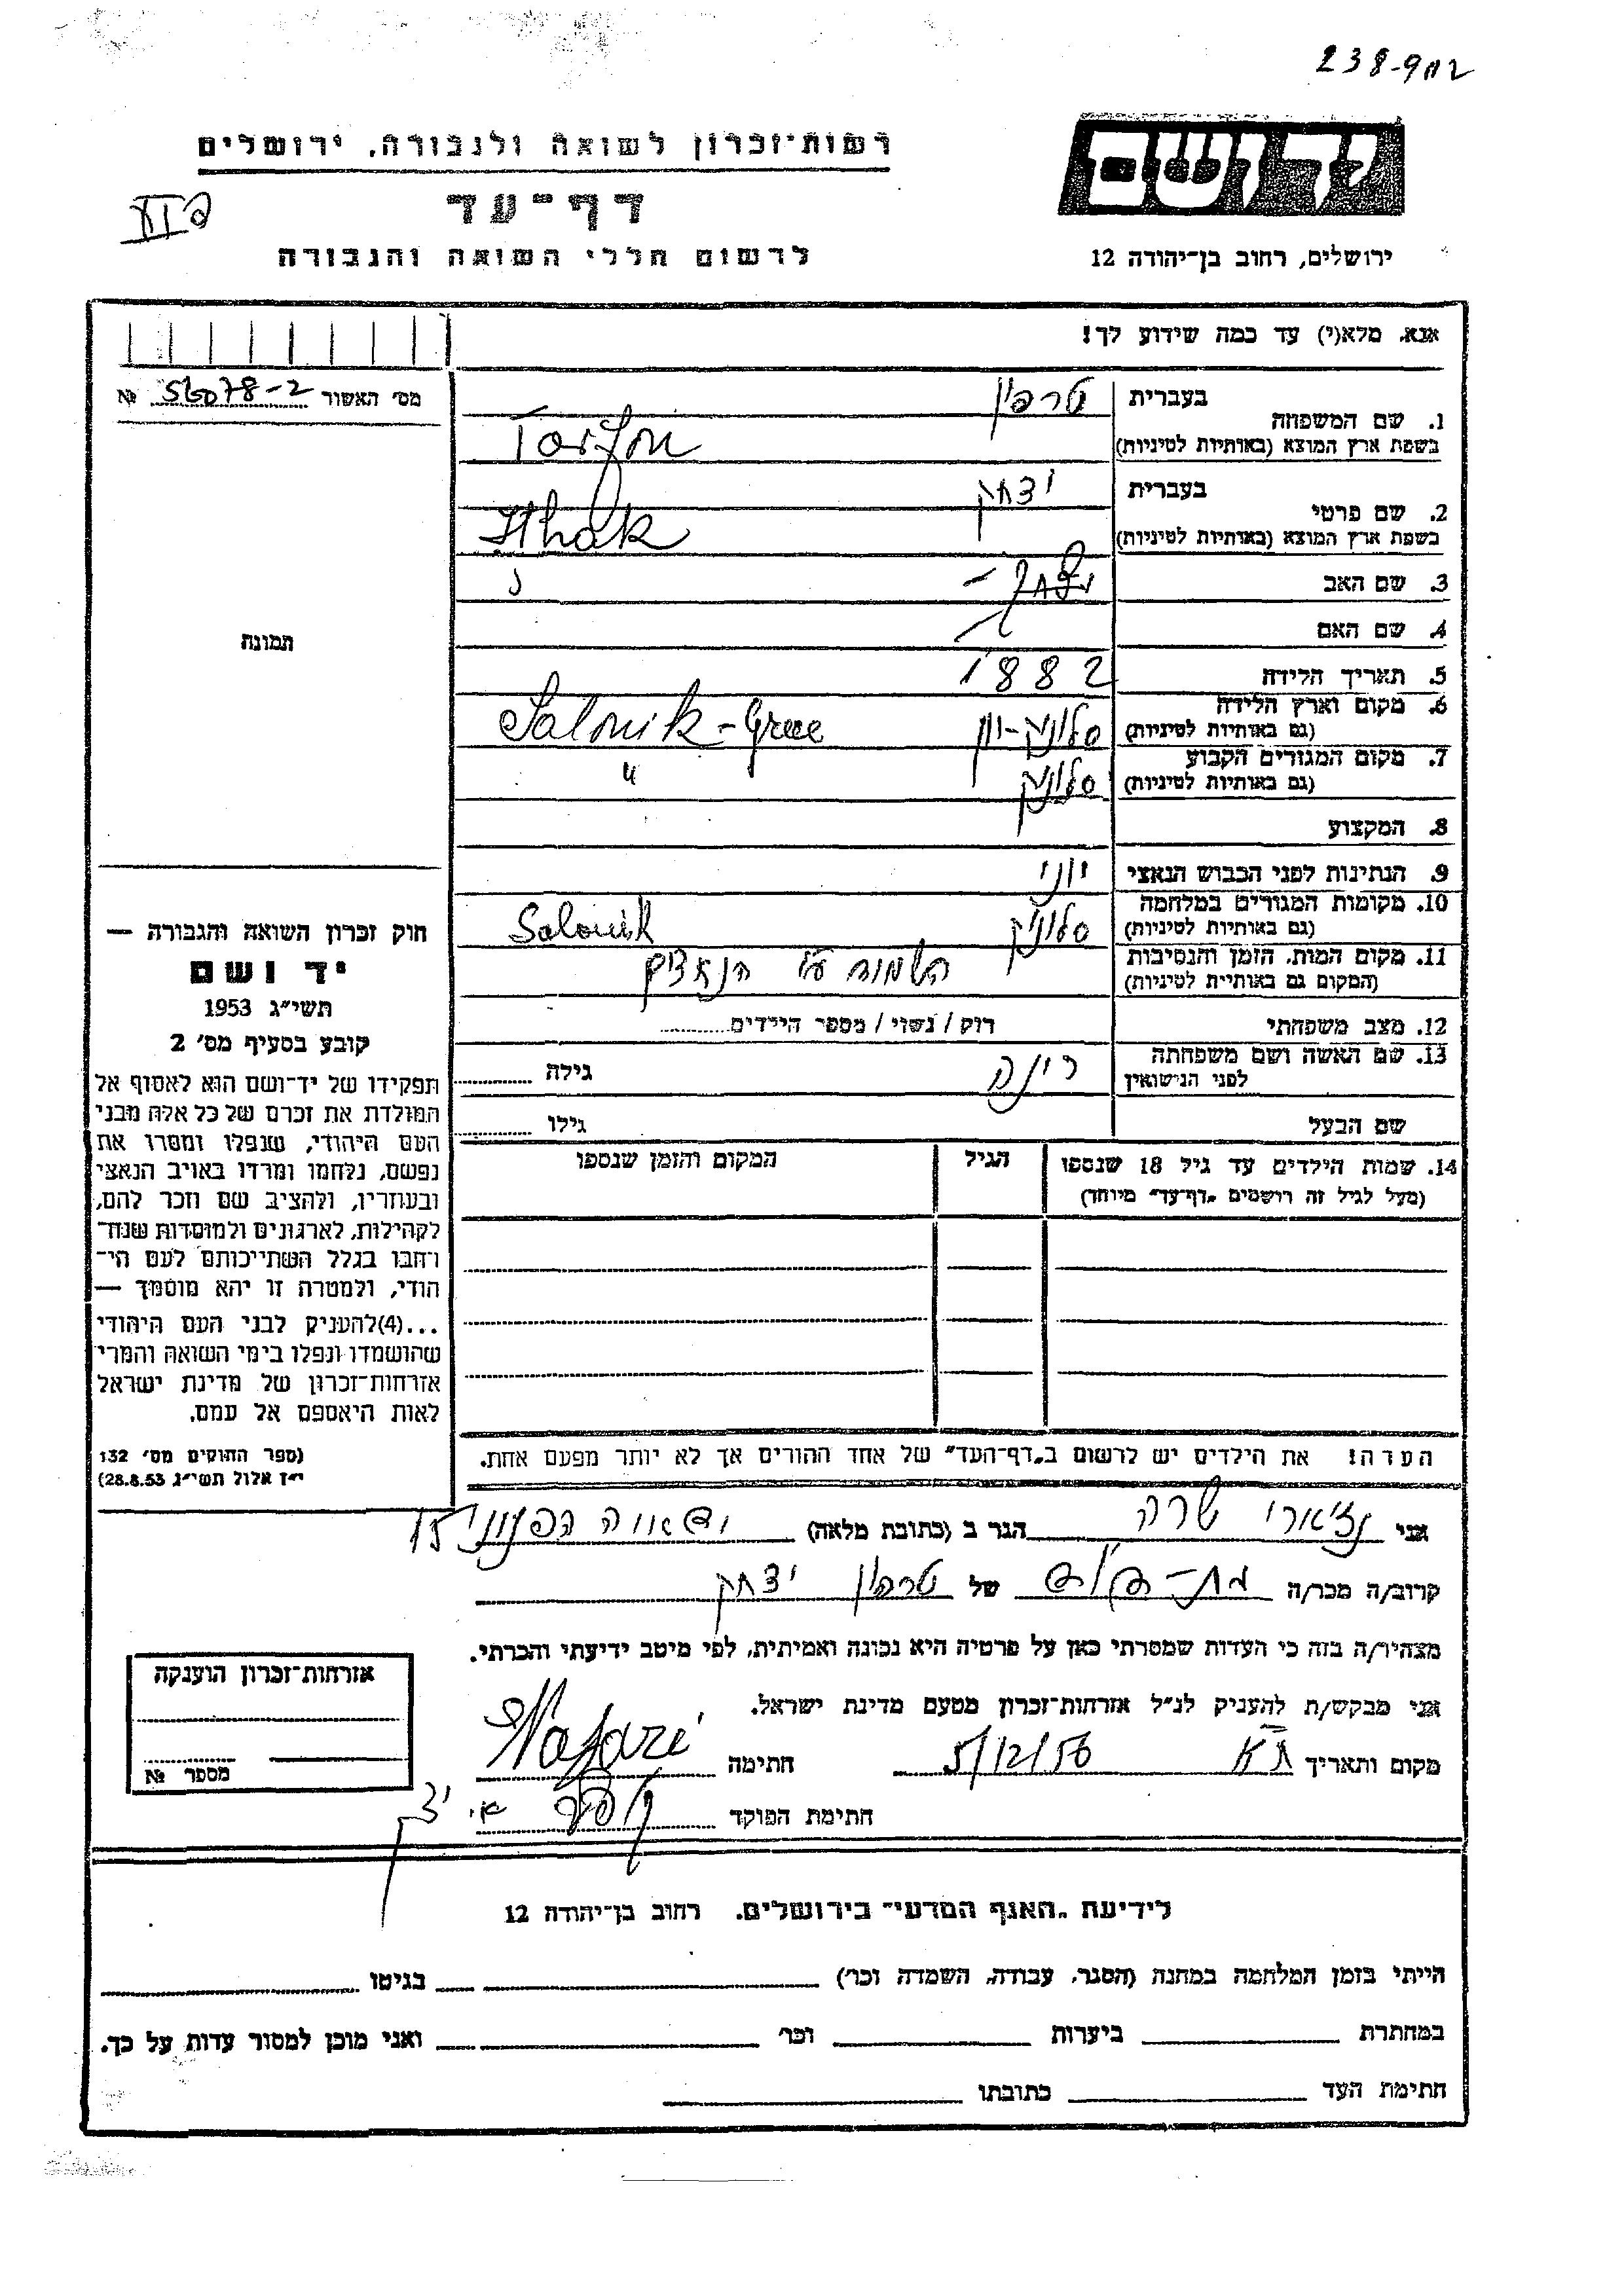 238-902
רשות-זכרון לשואה ולגבורה, ירושלים
יד ושם
דף-עד
לרשום חללי השואה והגבורה
ירושלים, רחוב בן-יהודה 12
אנא, מלא(י) עד כמה שידוע לך!
מס' האשור №
1. שם המשפחה בעברית טרפון
בשפת ארץ המוצא (באותיות לטיניות) Tarfon
2. שם פרטי בעברית יצחק
בשפת ארץ המוצא (באותיות לטיניות) Ithak
3. שם האב
4. שם האם
5. תאריך הלידה 1882
6. מקום וארץ הלידה (גם באותיות לטיניות) סלוניק-יון Salonik-Grece
7. מקום המגורים הקבוע (גם באותיות לטיניות) סלוניק "
8. המקצוע
9. הנתינות לפני הכבוש הנאצי יוני
10. מקומות המגורים במלחמה (גם באותיות לטיניות) סלוניק Salonik
11. מקום המות, הזמן והנסיבות (המקום גם באותיות לטיניות) הנאצים
12. מצב משפחתי רוק / נשוי / מספר הילדים
13. שם האשה ושם משפחתה לפני הנישואין גילה
שם הבעל גילו
14. שמות הילדים עד גיל 18 שנספו (מעל לגיל זה רושמים "דף-עד" מיוחד) הגיל המקום והזמן שנספו
תמונה
חוק זכרון השואה והגבורה —
יד ושם
תשי"ג 1953
קובע בסעיף מס' 2
תפקידו של יד-ושם הוא לאסוף אל
המולדת את זכרם של כל אלה מבני
העם היהודי, שנפלו ומסרו את
נפשם, נלחמו ומרדו באויב הנאצי
ובעוזריו, ולהציב שם וזכר להם,
לקהילות, לארגונים ולמוסדות שנח-
רבו בגלל השתייכותם לעם הי-
הודי, ולמטרה זו יהא מוסמך —
...(4)להעניק לבני העם היהודי
שהושמדו ונפלו בימי השואה והמרי
אזרחות-זכרון של מדינת ישראל
לאות היאספם אל עמם.
(ספר החוקים מס' 132
י"ז אלול תשי"ג 28.8.53)
הערה! את הילדים יש לרשום ב"דף-העד" של אחד ההורים אך לא יותר מפעם אחת.
אני שרה הגר ב (כתובת מלאה)
קרוב/ה מכר/ה של יצחק
מצהיר/ה בזה כי העדות שמסרתי כאן על פרטיה היא נכונה ואמיתית, לפי מיטב ידיעתי והכרתי.
אני מבקש/ת להעניק לנ"ל אזרחות-זכרון מטעם מדינת ישראל.
מקום ותאריך ת"א 5/12/56 חתימה
חתימת הפוקד
אזרחות-זכרון הוענקה
מספר №
לידיעת "האגף המדעי" בירושלים, רחוב בן-יהודה 12
הייתי בזמן המלחמה במחנה (הסגר, עבודה, השמדה וכר') בגיטו
במחתרת ביערות וכר' ואני מוכן למסור עדות על כך.
חתימת העד כתובתו